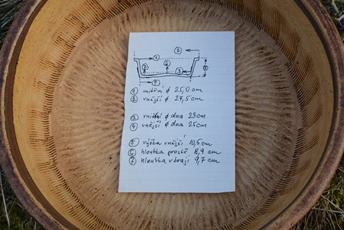 ① vnitřní ø 25,0 cm
② vnější ø 29,5 cm
③ vnitřní ø dna 23cm
④ vnější ø dna 25cm
⑤ výška vnější 10,5cm
⑥ hloubka prostř. 8,9 cm
⑦ hloubka v kraji 9,7 cm